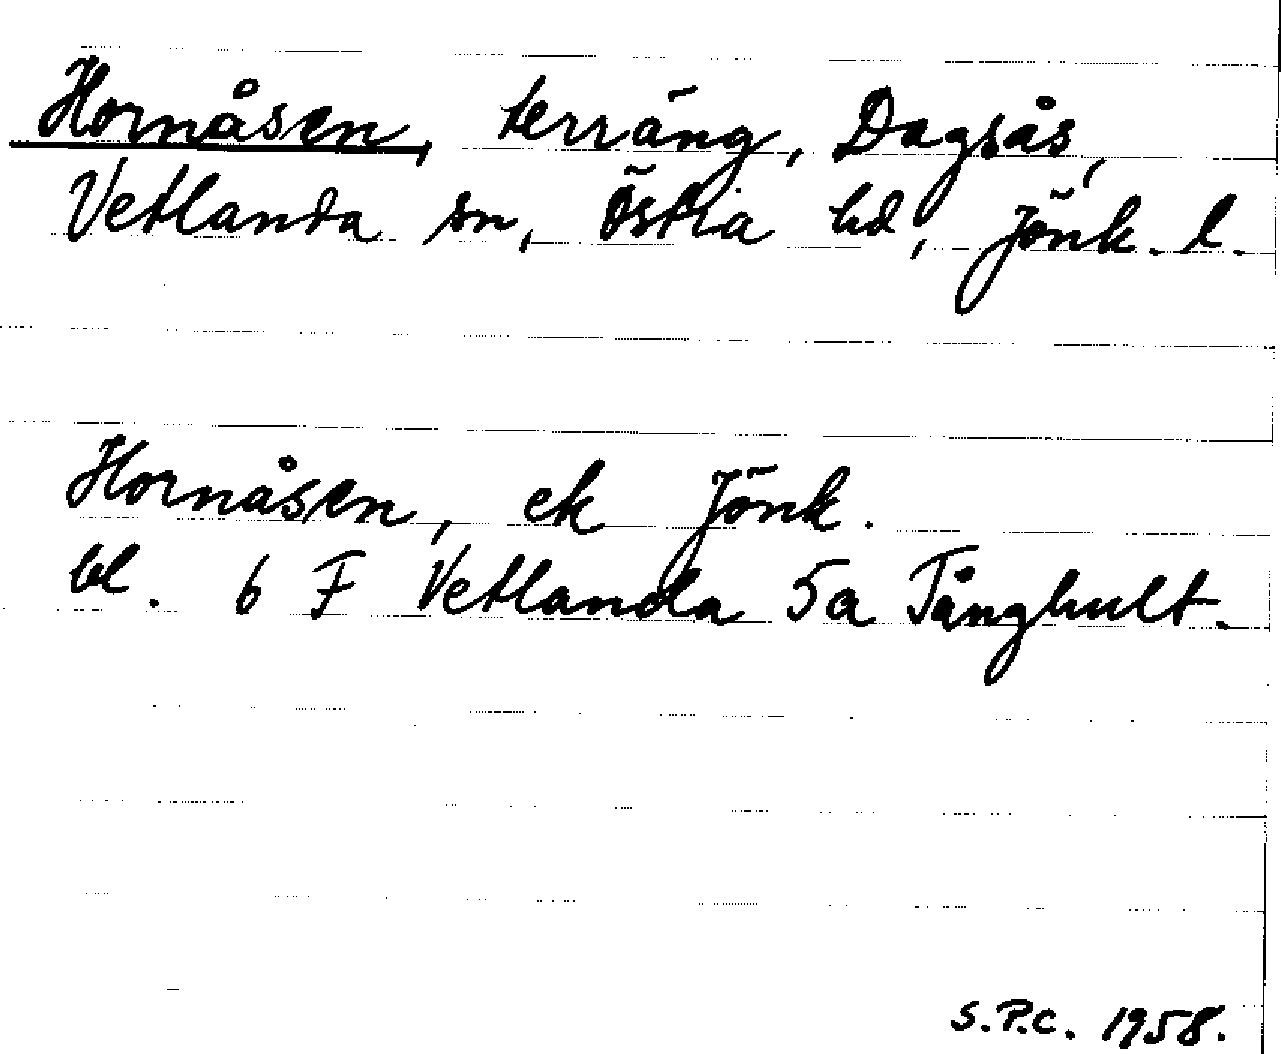 Hornåsen, terräng, Dagsås,
Vetlanda sn, Östra hd, Jönk. l.
Hornåsen, ek Jönk.
bl. 6 F Vetlanda 5a Tånghult.
S.P.C. 1958.